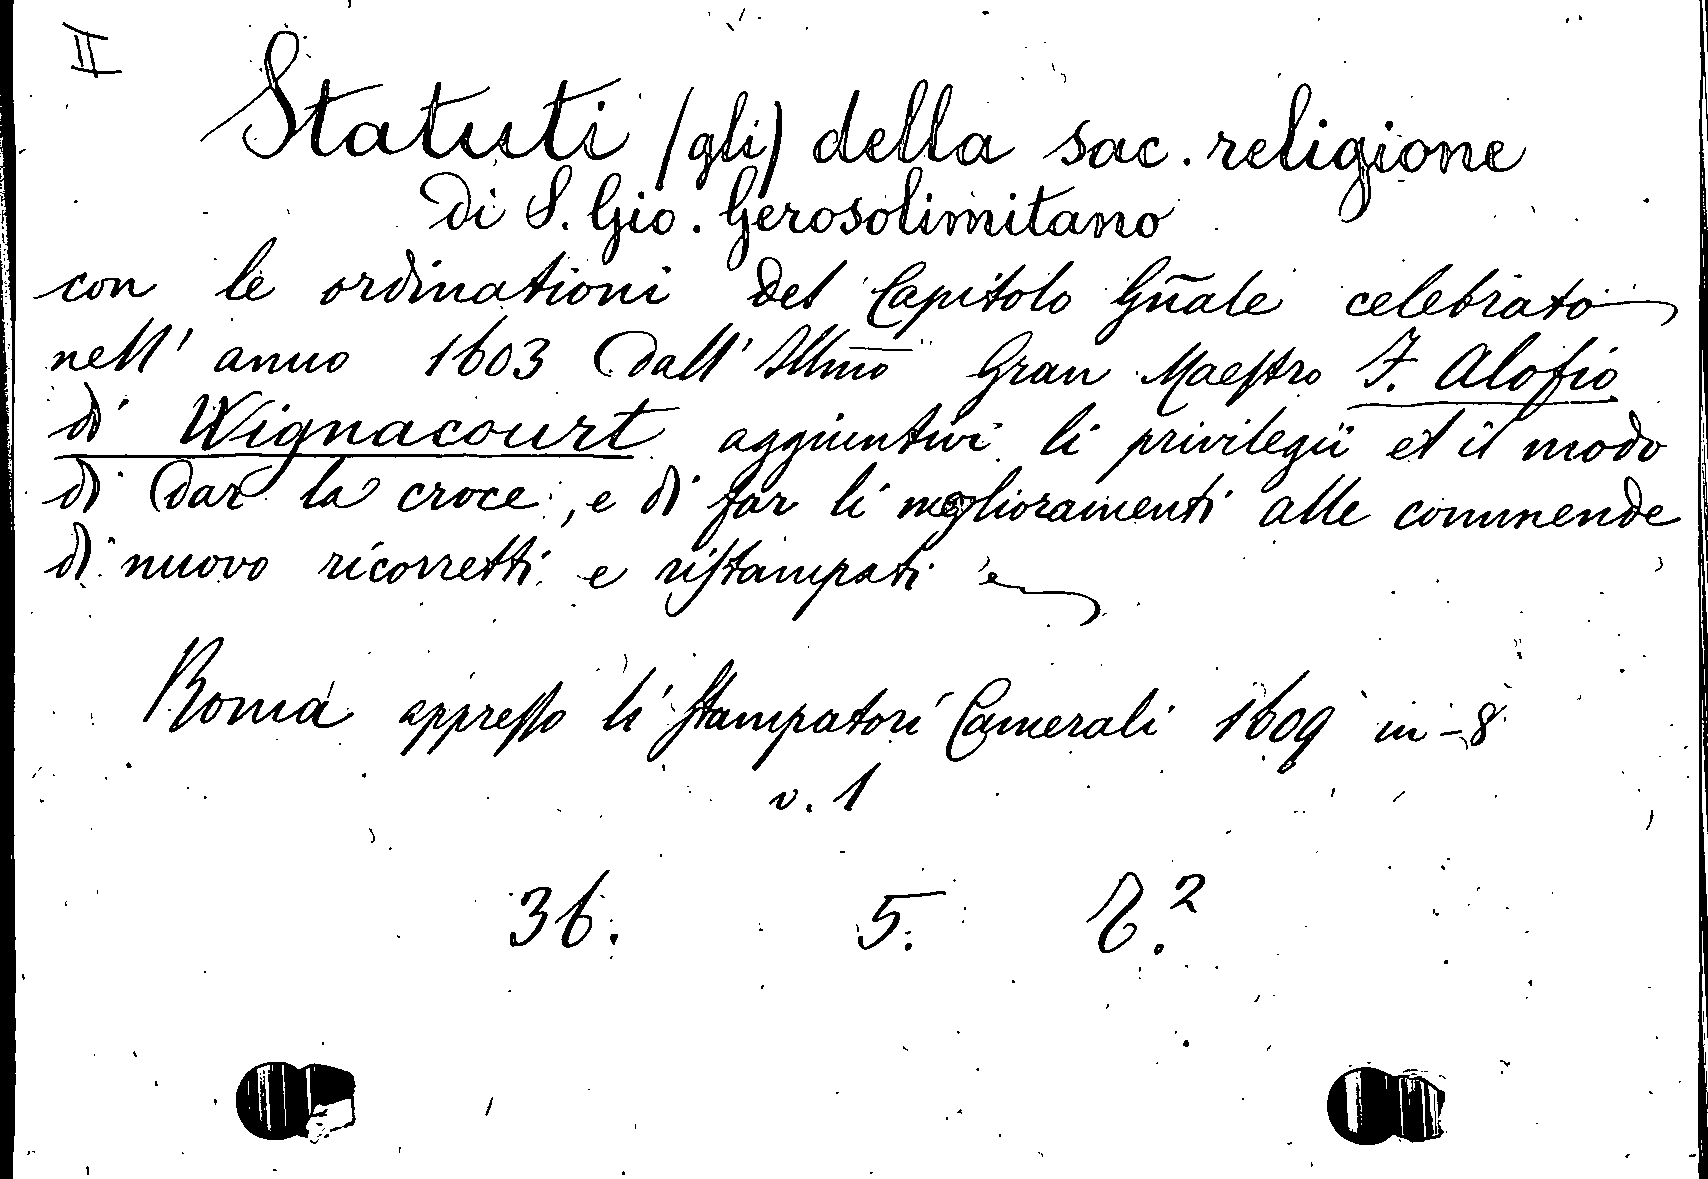 II
Statuti (gli) della sac. religione
di S. Gio. Gerosolimitano
con le ordinationi del Capitolo Gñale celebrato
nell' anno 1603 dall' Illmo Gran Maestro F. Alofio
di Wignacourt aggiuntivi li privilegii et il modo
di dar la croce, e di far li meglioramenti alle commende
di nuovo ricorretti e ristampati
Roma appresso li stampatori Camerali 1609 in-8
v. 1
36. 5.